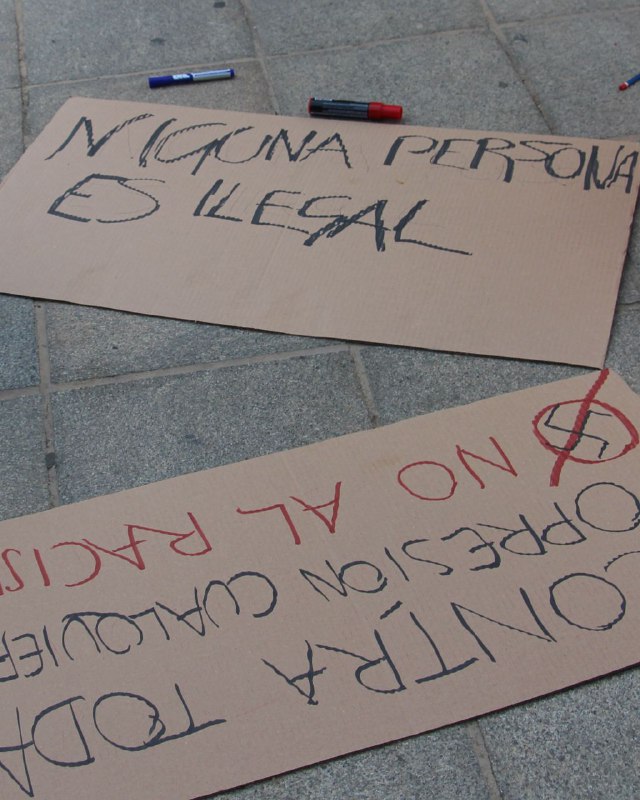 NIGUNA PERSONA
ES ILEGAL
CONTRA TODA
OPRESION CUALQUIER
NO AL RACIS